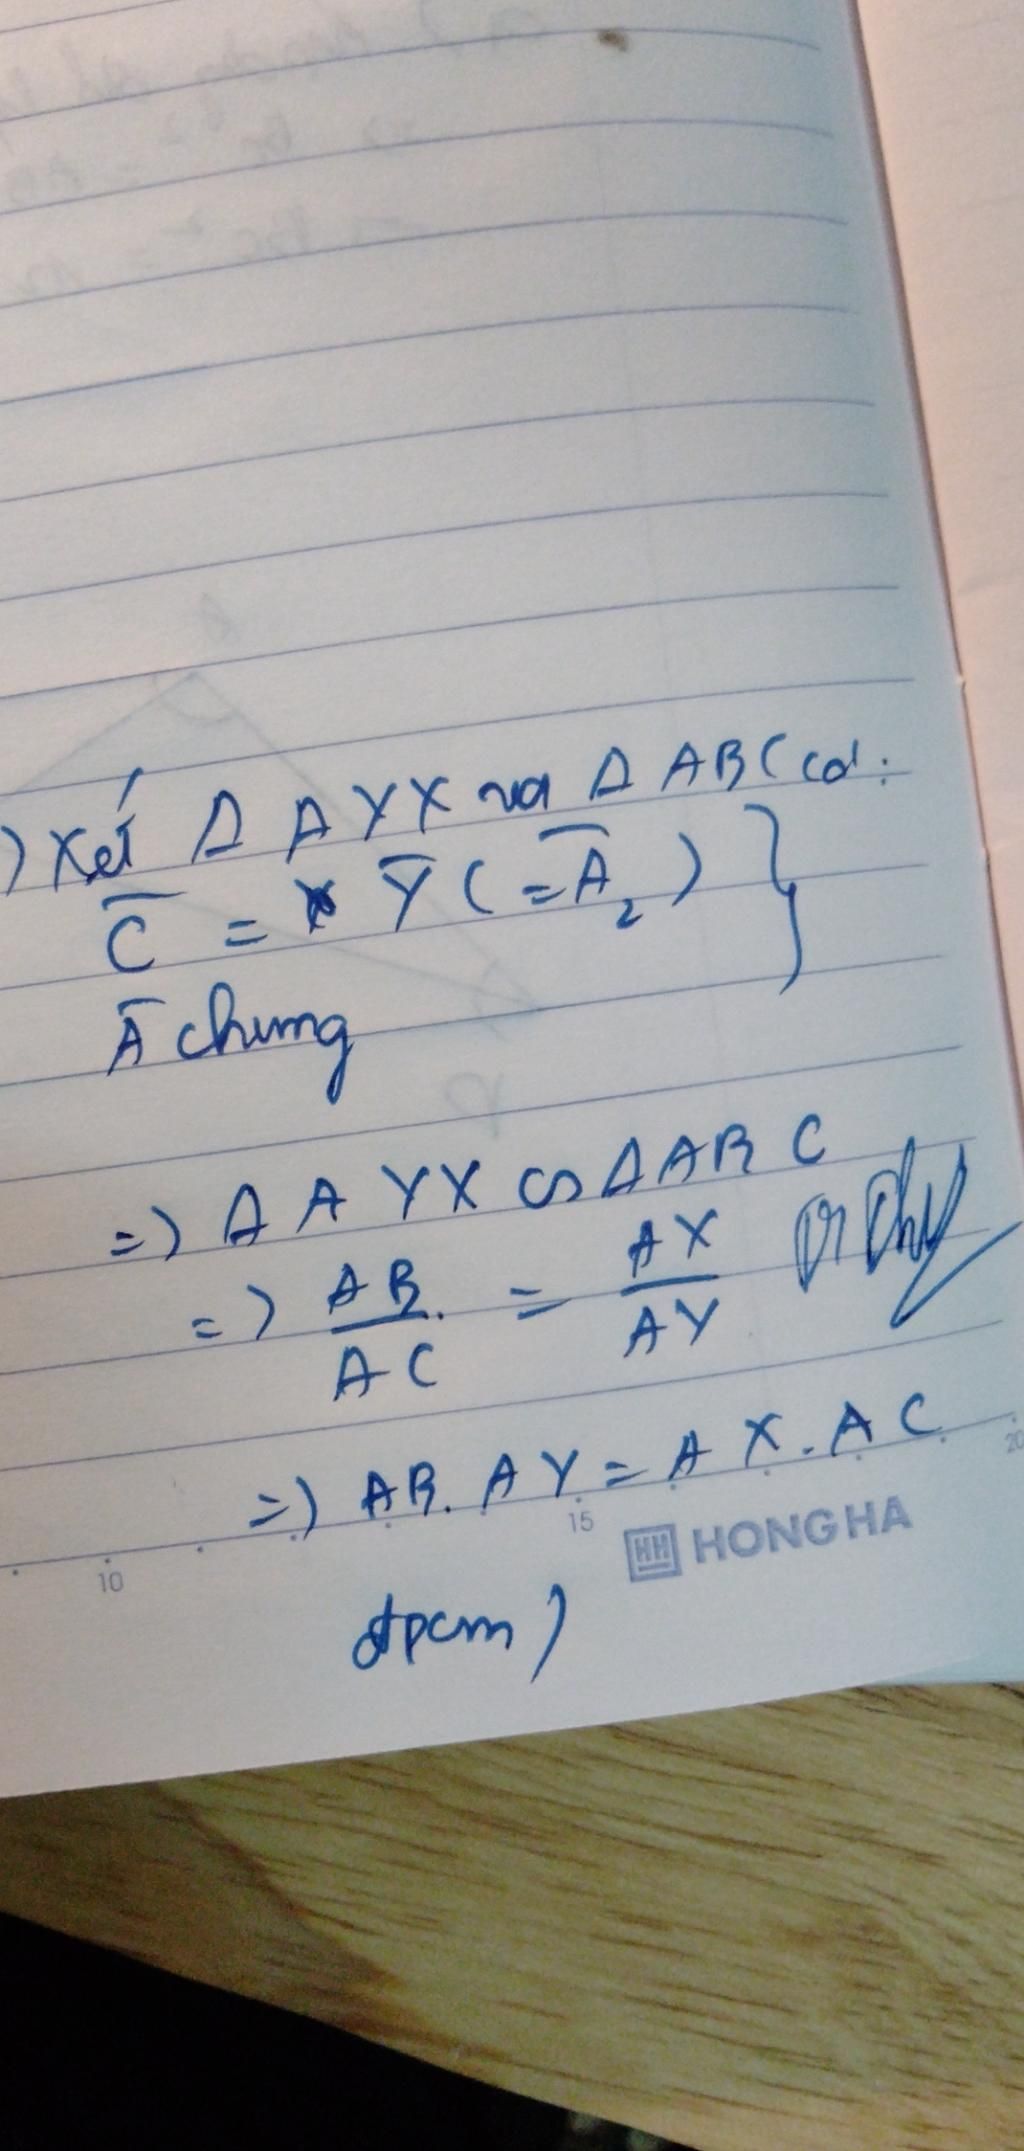 ) Xét Δ AYX và Δ ABC có:
C̅ = Y̅ (= A̅₂) }
A̅ chung
=) Δ AYX ∽ Δ ABC
=) AB/AC = AX/AY
=) AB. AY = AX. AC
10 15 20
HH HONG HA
đpcm)